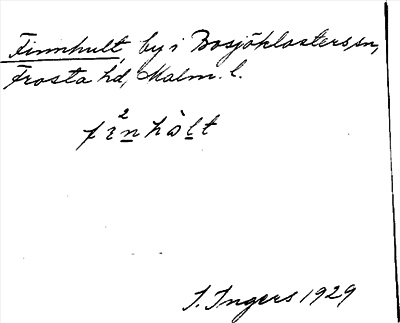 Finnhult, by i Bosjöklosters sn,
Frosta hd, Malm. l.
fi²nhòlt
I. Ingers 1929